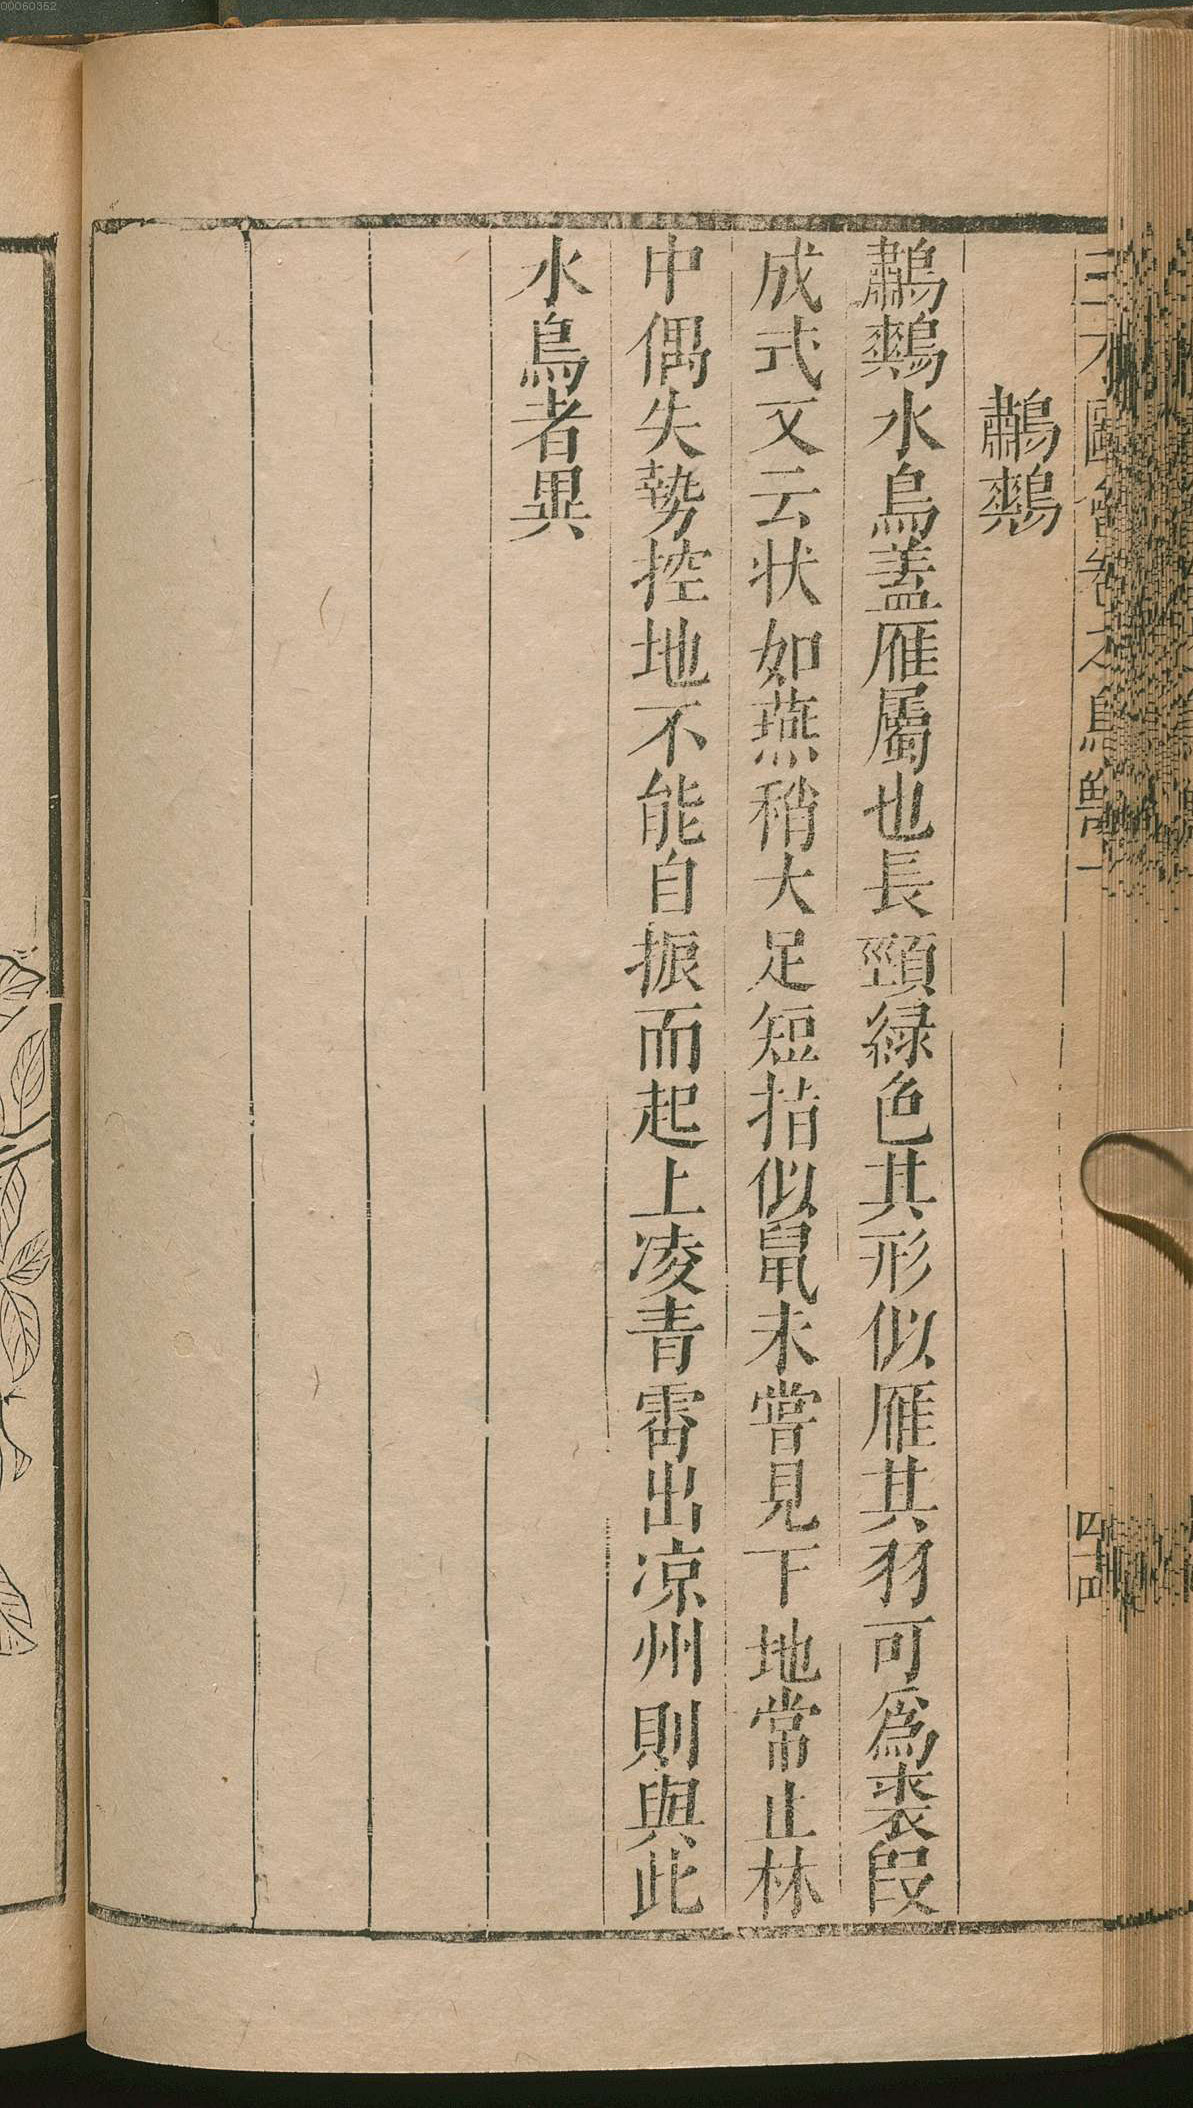 00060352
鷫鷞
鷫鷞水鳥蓋雁屬也長頸綠色其形似雁其羽可為裘段
成式又云狀如燕稍大足短指似鼠未嘗見下地常止林
中偶失勢控地不能自振而起上凌青霄出凉州則與此
水鳥者異